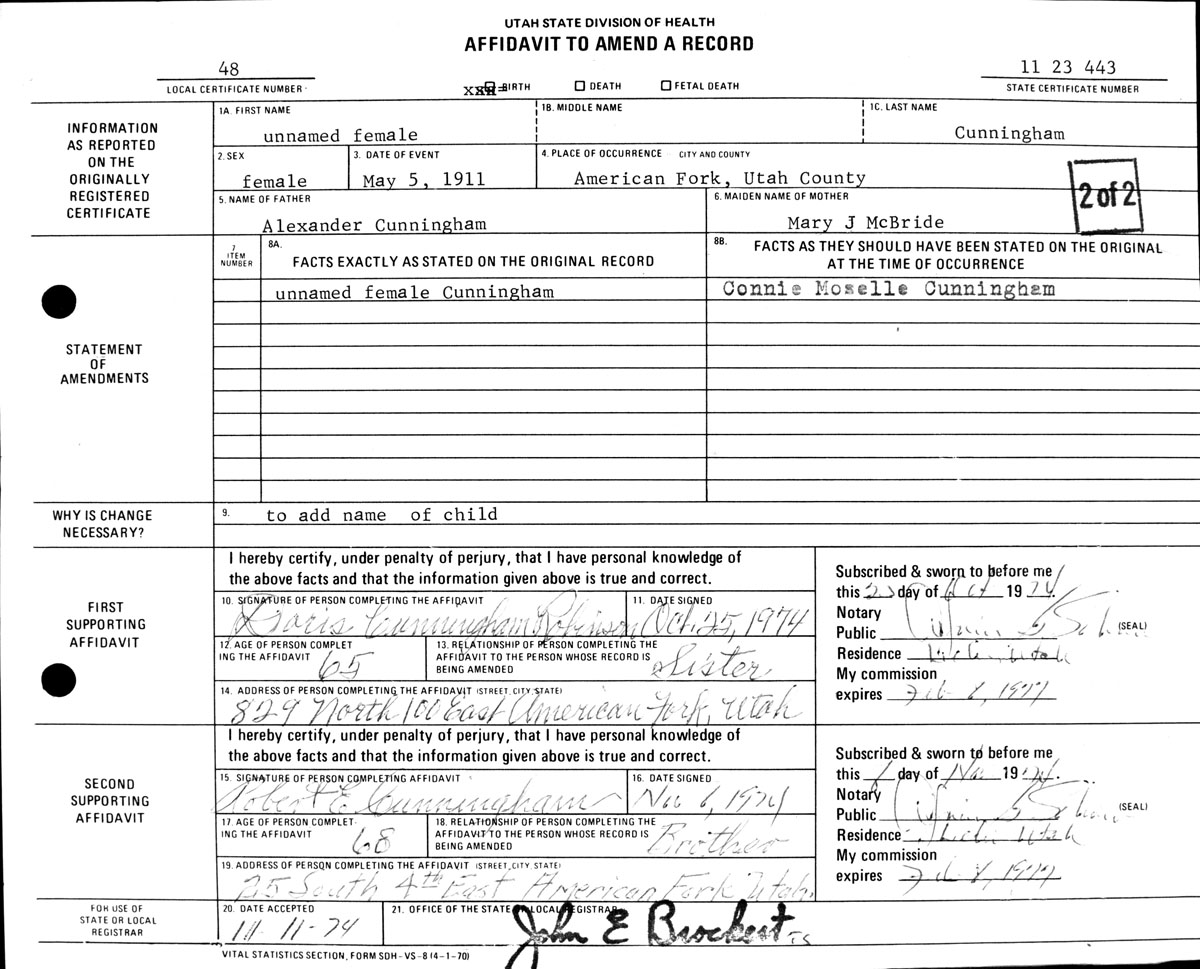 UTAH STATE DIVISION OF HEALTH
AFFIDAVIT TO AMEND A RECORD
48
LOCAL CERTIFICATE NUMBER
11 23 443
STATE CERTIFICATE NUMBER
xxx BIRTH DEATH FETAL DEATH
INFORMATION
AS REPORTED
ON THE
ORIGINALLY
REGISTERED
CERTIFICATE
1A. FIRST NAME
unnamed female
1B. MIDDLE NAME
1C. LAST NAME
Cunningham
2. SEX
female
3. DATE OF EVENT
May 5, 1911
4. PLACE OF OCCURRENCE CITY AND COUNTY
American Fork, Utah County
2 of 2
5. NAME OF FATHER
Alexander Cunningham
6. MAIDEN NAME OF MOTHER
Mary J McBride
STATEMENT
OF
AMENDMENTS
7
ITEM
NUMBER
8A.
FACTS EXACTLY AS STATED ON THE ORIGINAL RECORD
8B. FACTS AS THEY SHOULD HAVE BEEN STATED ON THE ORIGINAL
AT THE TIME OF OCCURRENCE
unnamed female Cunningham
Connie Moselle Cunningham
WHY IS CHANGE
NECESSARY?
9. to add name of child
FIRST
SUPPORTING
AFFIDAVIT
I hereby certify, under penalty of perjury, that I have personal knowledge of
the above facts and that the information given above is true and correct.
10. SIGNATURE OF PERSON COMPLETING THE AFFIDAVIT
Doris Cunningham Robinson
11. DATE SIGNED
Oct. 25, 1974
12. AGE OF PERSON COMPLET
ING THE AFFIDAVIT 65
13. RELATIONSHIP OF PERSON COMPLETING THE
AFFIDAVIT TO THE PERSON WHOSE RECORD IS
BEING AMENDED Sister
14. ADDRESS OF PERSON COMPLETING THE AFFIDAVIT (STREET, CITY, STATE)
829 North 100 East American Fork, Utah
Subscribed & sworn to before me
this day of Oct 1974.
Notary
Public (SEAL)
Residence Utah
My commission
expires Feb 8, 1977
SECOND
SUPPORTING
AFFIDAVIT
I hereby certify, under penalty of perjury, that I have personal knowledge of
the above facts and that the information given above is true and correct.
15. SIGNATURE OF PERSON COMPLETING AFFIDAVIT
Robert E Cunningham
16. DATE SIGNED
Nov 6, 1974
17. AGE OF PERSON COMPLET
ING THE AFFIDAVIT 68
18. RELATIONSHIP OF PERSON COMPLETING THE
AFFIDAVIT TO THE PERSON WHOSE RECORD IS
BEING AMENDED Brother
19. ADDRESS OF PERSON COMPLETING THE AFFIDAVIT (STREET, CITY, STATE)
25 South 4th East American Fork Utah
Subscribed & sworn to before me
this day of Nov 1974.
Notary
Public (SEAL)
Residence Utah
My commission
expires Feb 8, 1977
FOR USE OF
STATE OR LOCAL
REGISTRAR
20. DATE ACCEPTED
11-11-74
21. OFFICE OF THE STATE OR LOCAL REGISTRAR
John E Brockert
VITAL STATISTICS SECTION, FORM SDH-VS-8 (4-1-70)